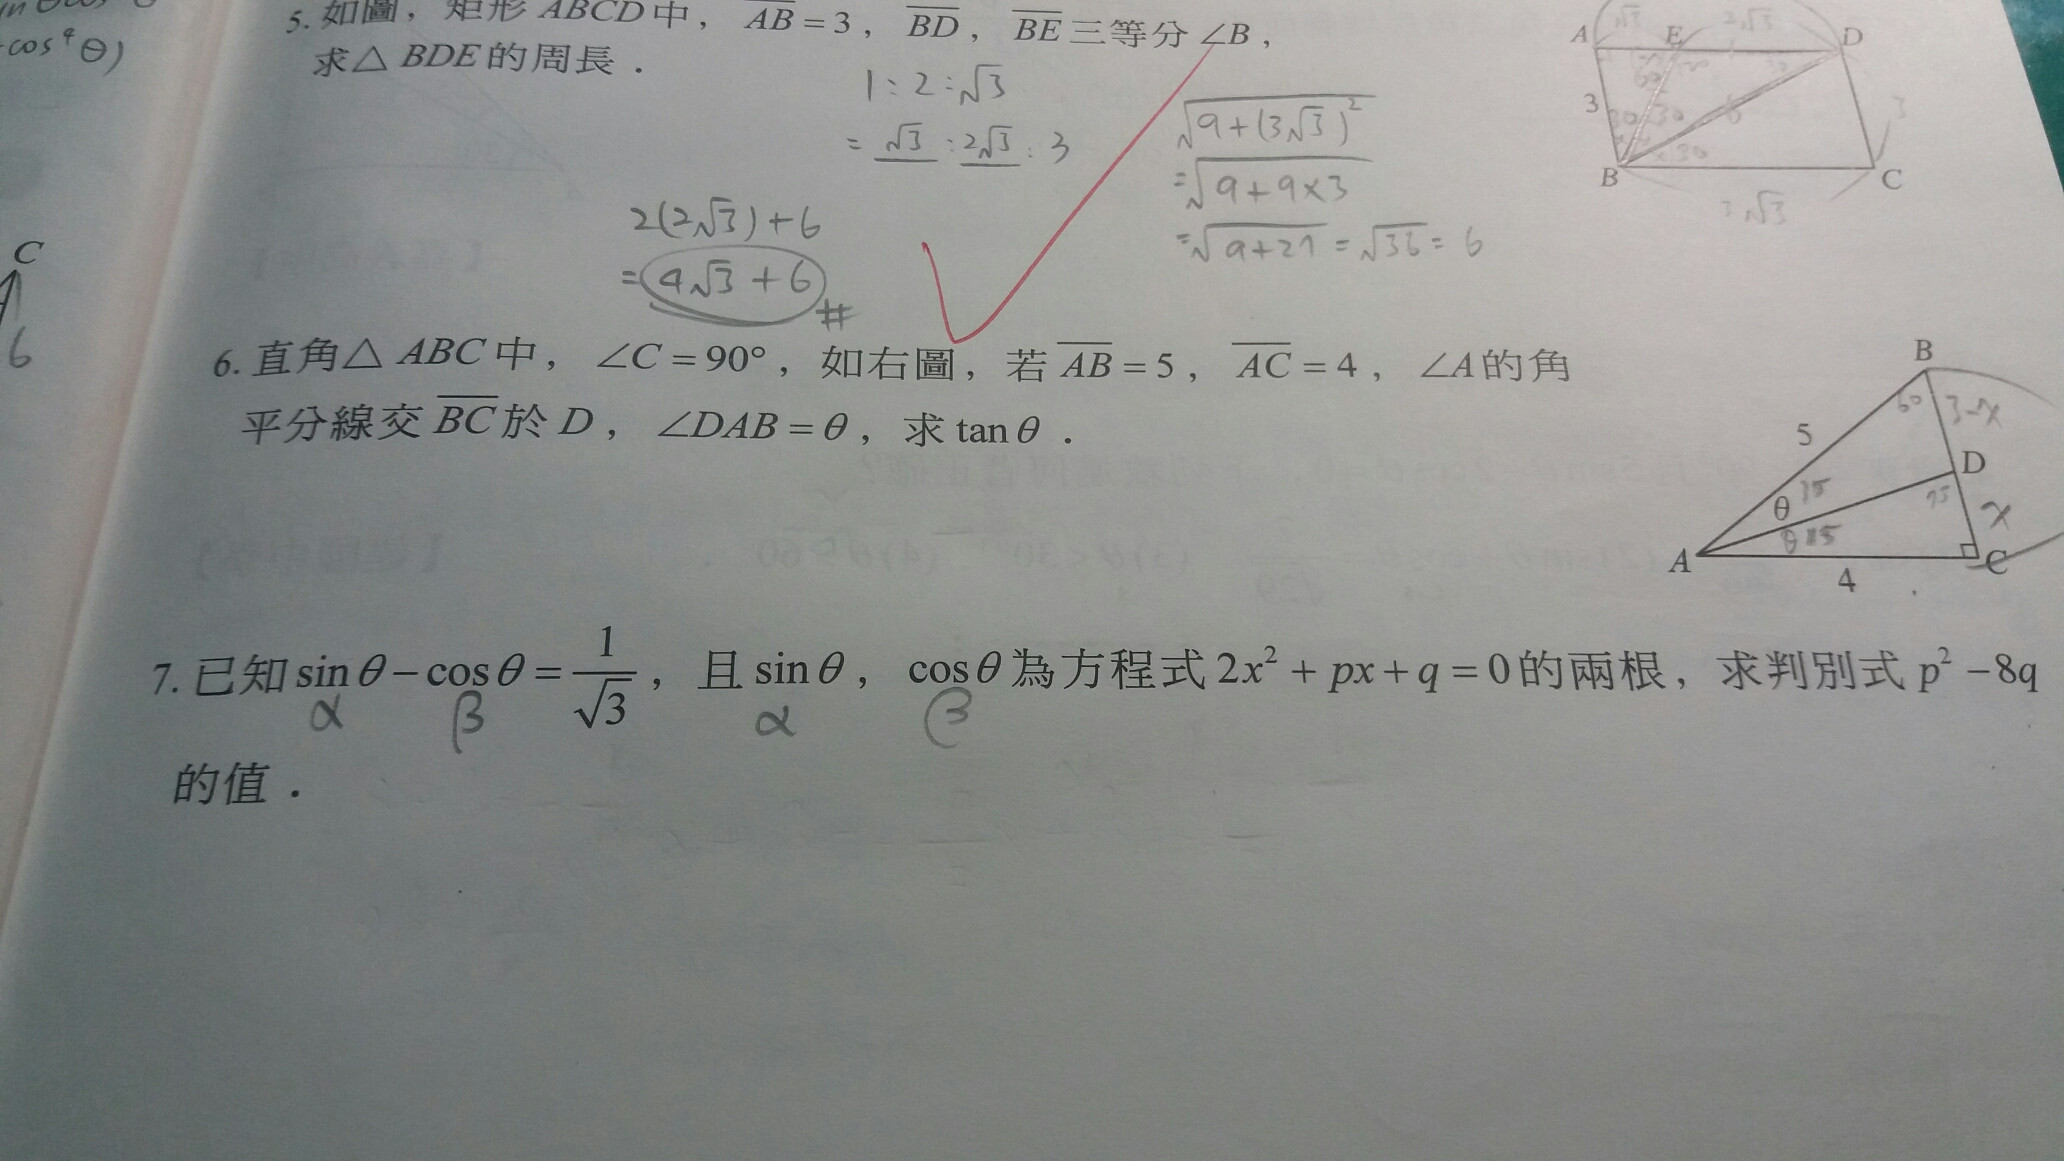 cos⁴θ)
C
6
5. 如圖，矩形 ABCD 中，AB = 3，BD，BE 三等分 ∠B，
求△ BDE 的周長．
1 : 2 : √3
= √3 : 2√3 : 3
2(2√3) + 6
= 4√3 + 6 #
√9 + (3√3)²
= √9 + 9×3
= √9+27 = √36 = 6
A E D
√3 2√3
3 60 30 30 6 3
30
B C
3√3
6. 直角△ ABC 中，∠C = 90°，如右圖，若 AB = 5，AC = 4，∠A 的角
平分線交 BC 於 D，∠DAB = θ，求 tanθ．
B
60 3-x
5
D
θ 15 75 x
θ 15
A C
4
7. 已知 sinθ − cosθ = 1/√3，且 sinθ，cosθ 為方程式 2x² + px + q = 0 的兩根，求判別式 p² − 8q
α β α β
的值．